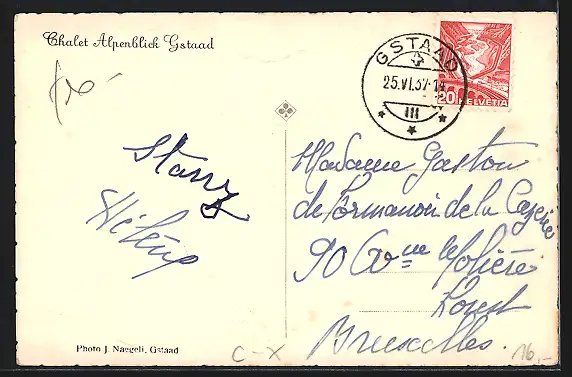 Chalet Alpenblick Gstaad
GSTAAD
25.VI.37-14
III
20 HELVETIA
Stany
Hélène
Madame Gaston
de Formanoir de la Cazerie
90 Avue Molière
Forest
Bruxelles.
Photo J. Naegeli, Gstaad
C-X
16,-